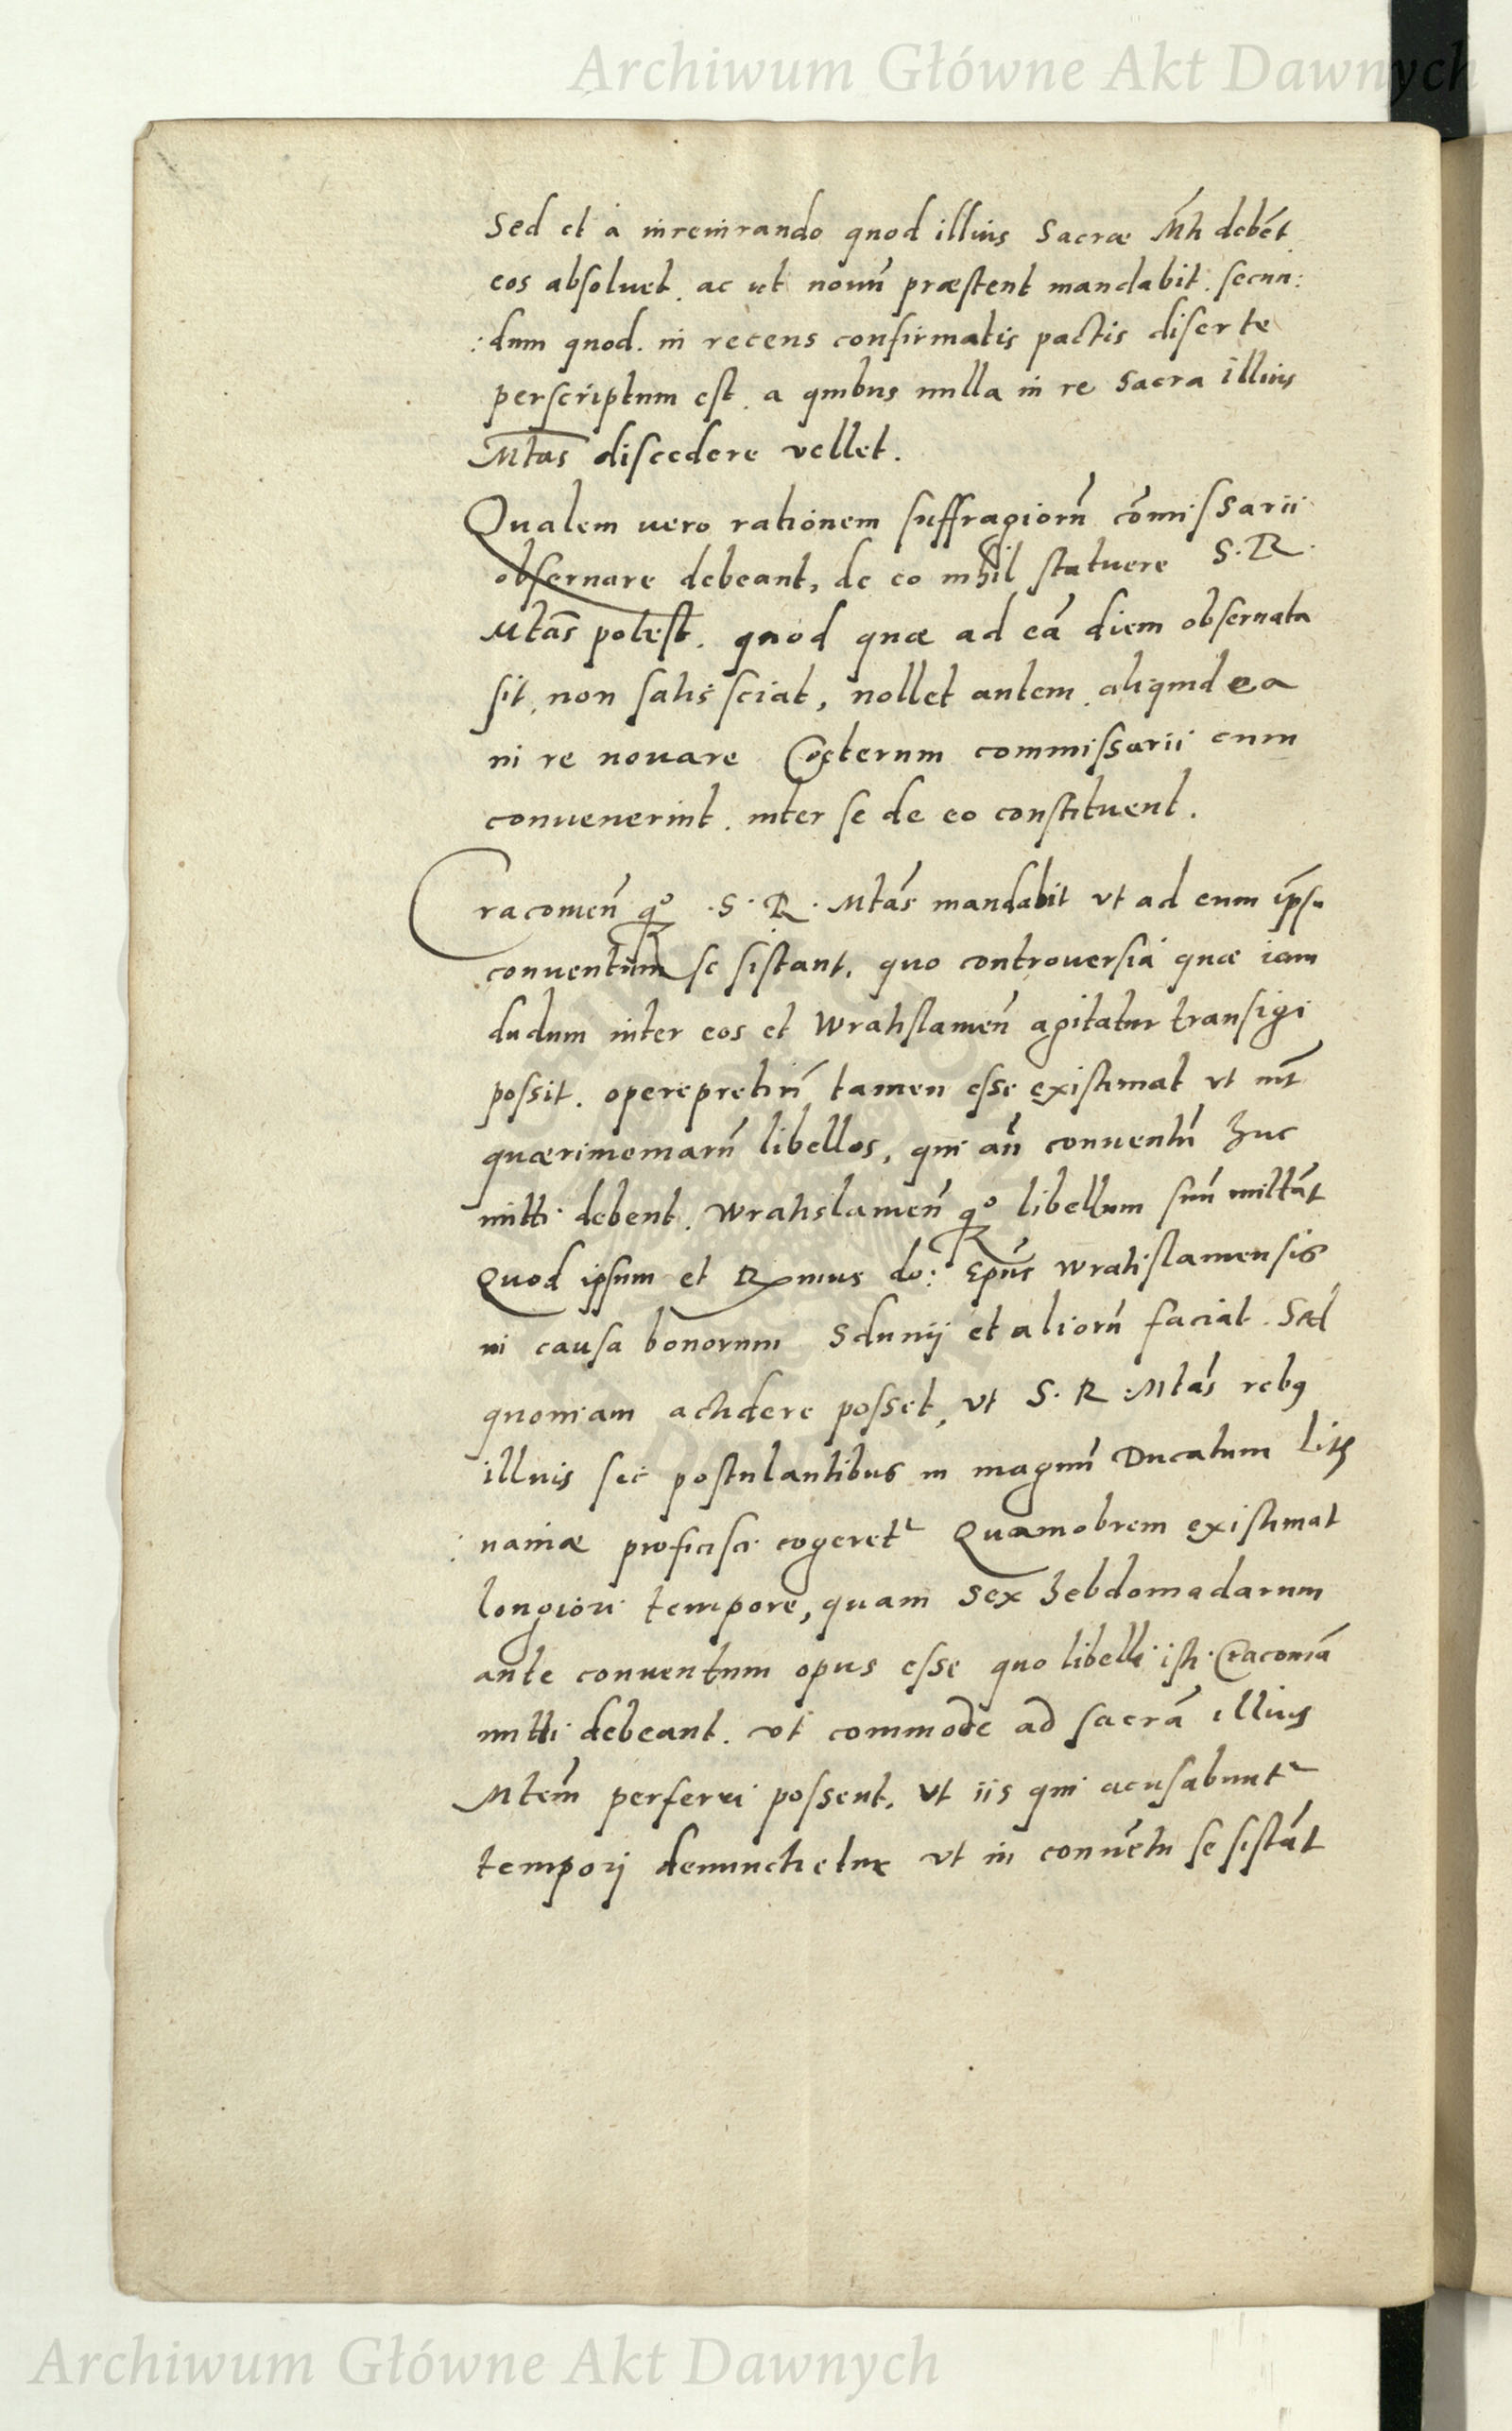 Archiwum Główne Akt Dawnych
Sed et à iureiurando quod illius Sacræ Mti debēt
eos absoluet. ac ut nouū præstent mandabit. secun:
:dum quod. in recens confirmatis pactis diserte
perscriptum est. a quibus nulla in re Sacra illius
Mtas discedere vellet.
Qualem uero rationem suffragiorū cōmissarii
obseruare debeant, de eo nihil statuere S. R.
Mtas potest. quod quæ ad eā diem obseruata
sit, non satis sciat, nollet autem aliquid ea
in re nouare Cęterum commissarii cum
conuenerint. inter se de eo constituent.
Cracouien̄ qȝ .S. R. Mtas mandabit vt ad eum ip̄sū
conuentum se sistant, quo controuersia quæ iam
dudum inter eos et Wratislauien̄ agitatur transigi
possit. operepretiū tamen esse existimat vt
quærimoniarū libellos, qui an̄ conuentū huc
mitti debent. Wratislauien̄ qȝ libellum suū mittāt
Quod ipsum et Rmus do: Ep̄us Wratislauiensis
in causa bonorum Sdunij et aliorū faciat. Sed
quoniam accidere posset, vt S. R. Mtas rebꝰ
illius sic postulantibus in magnū Ducatum Lith
:uaniæ proficisci cogeretʳ Quamobrem existimat
longiori tempore, quam sex hebdomadarum
ante conuentum opus esse quo libelli isti Cracouiā
mitti debeant. vt commode ad sacrā illius
Mtem perferri possent, vt iis qui acusabuntʳ
temporj denuncietur vt in conuētu se sistāt
Archiwum Główne Akt Dawnych